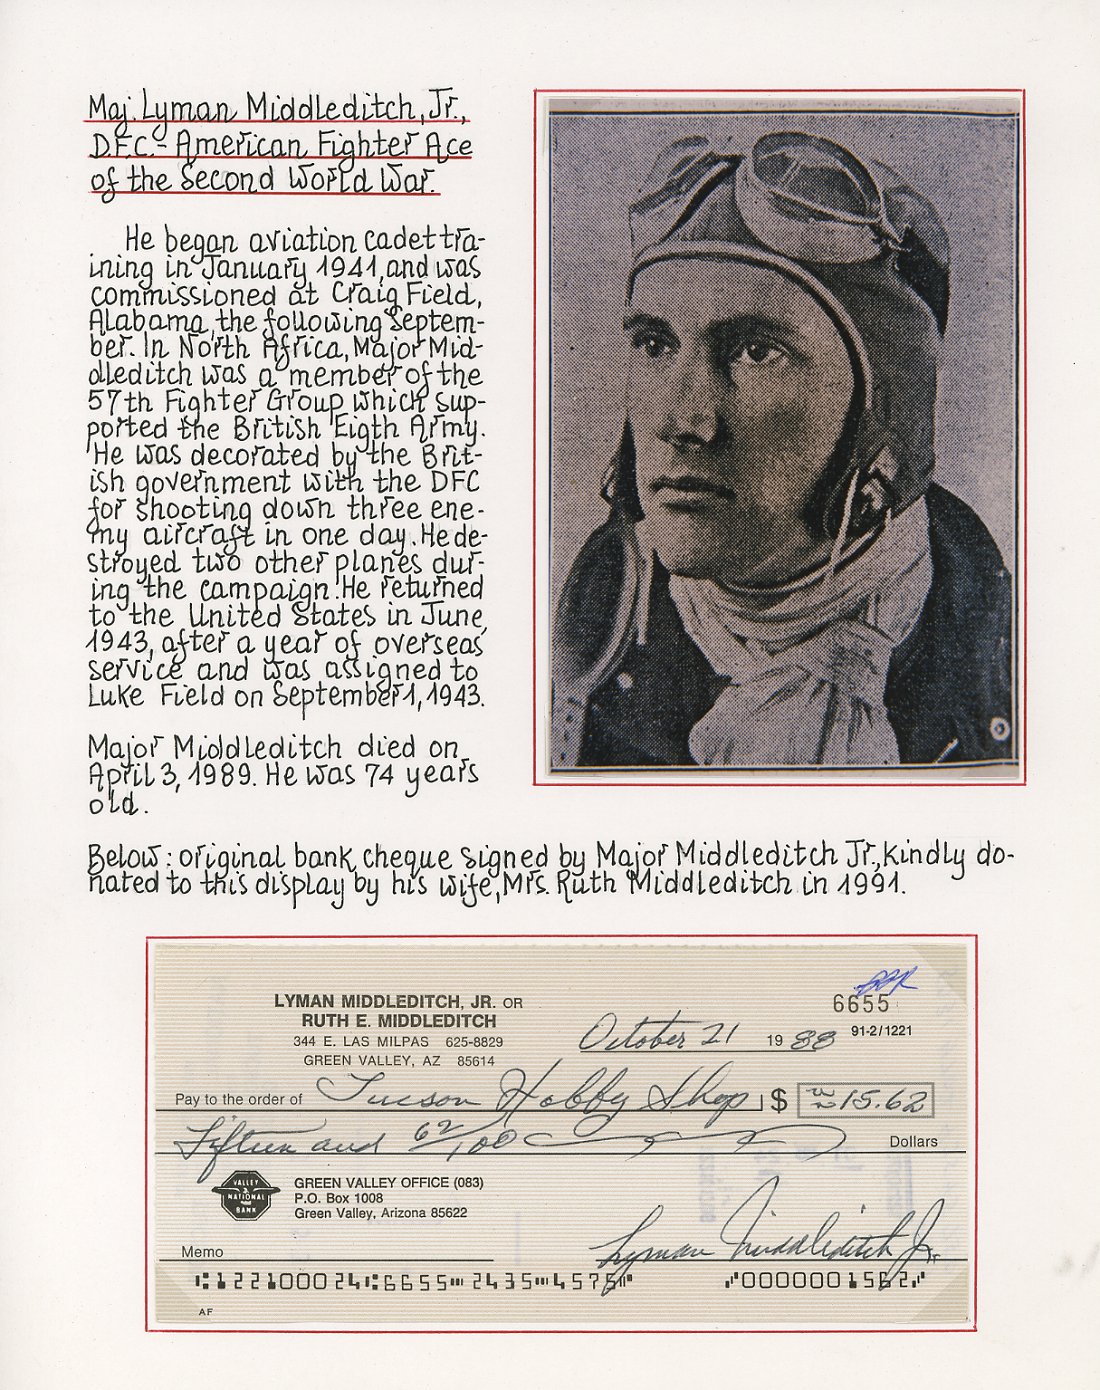 Maj. Lyman Middleditch, Jr.,
D.F.C.- American Fighter Ace
of the Second World War.
He began aviation cadet tra-
ining in January 1941, and was
commissioned at Craig Field,
Alabama, the following Septem-
ber. In North Africa, Major Mid-
dleditch was a member of the
57th Fighter Group which sup-
ported the British Eigth Army.
He was decorated by the Brit-
ish government with the DFC
for shooting down three ene-
my aircraft in one day. He de-
stroyed two other planes dur-
ing the campaign. He returned
to the United States in June,
1943, after a year of overseas
service and was assigned to
Luke Field on September 1, 1943.
Major Middleditch died on
April 3, 1989. He was 74 years
old.
Below: original bank cheque signed by Major Middleditch Jr., kindly do-
nated to this display by his wife, Mrs. Ruth Middleditch in 1991.
LYMAN MIDDLEDITCH, JR. OR
RUTH E. MIDDLEDITCH
344 E. LAS MILPAS 625-8829
GREEN VALLEY, AZ 85614
6655
91-2/1221
October 21 19 88
Pay to the order of Tucson Hobby Shop $ 15.62
Fifteen and 62/100 Dollars
VALLEY
NATIONAL
BANK
GREEN VALLEY OFFICE (083)
P.O. Box 1008
Green Valley, Arizona 85622
Memo
Lyman Middleditch Jr.
⑆122100024⑆6655⑈2435⑈4575⑈ ⑈0000001562⑈
AF